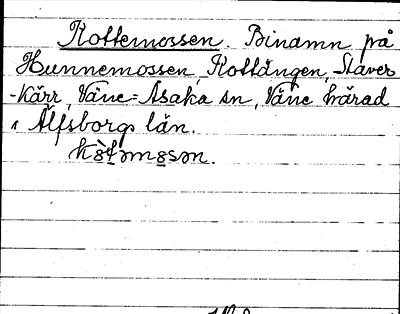 Kottemossen. Binamn på
Hunnemossen, Kottängen, Staver
-Kärr, Väne-Åsaka sn, Väne härad
i Älfsborgs län.